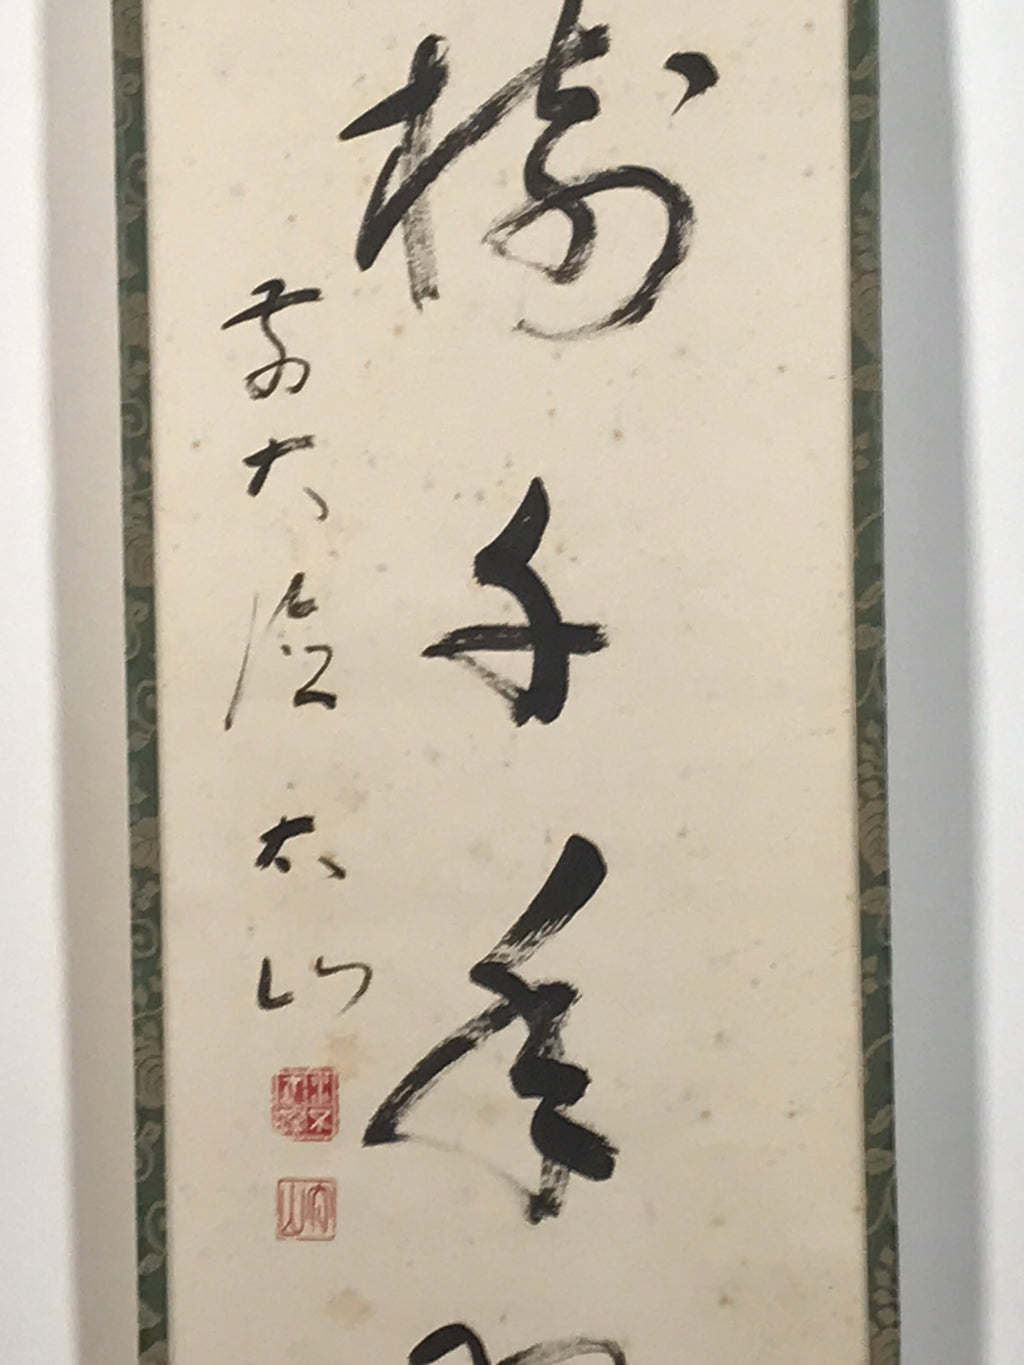 樹千年
前大徳 太山